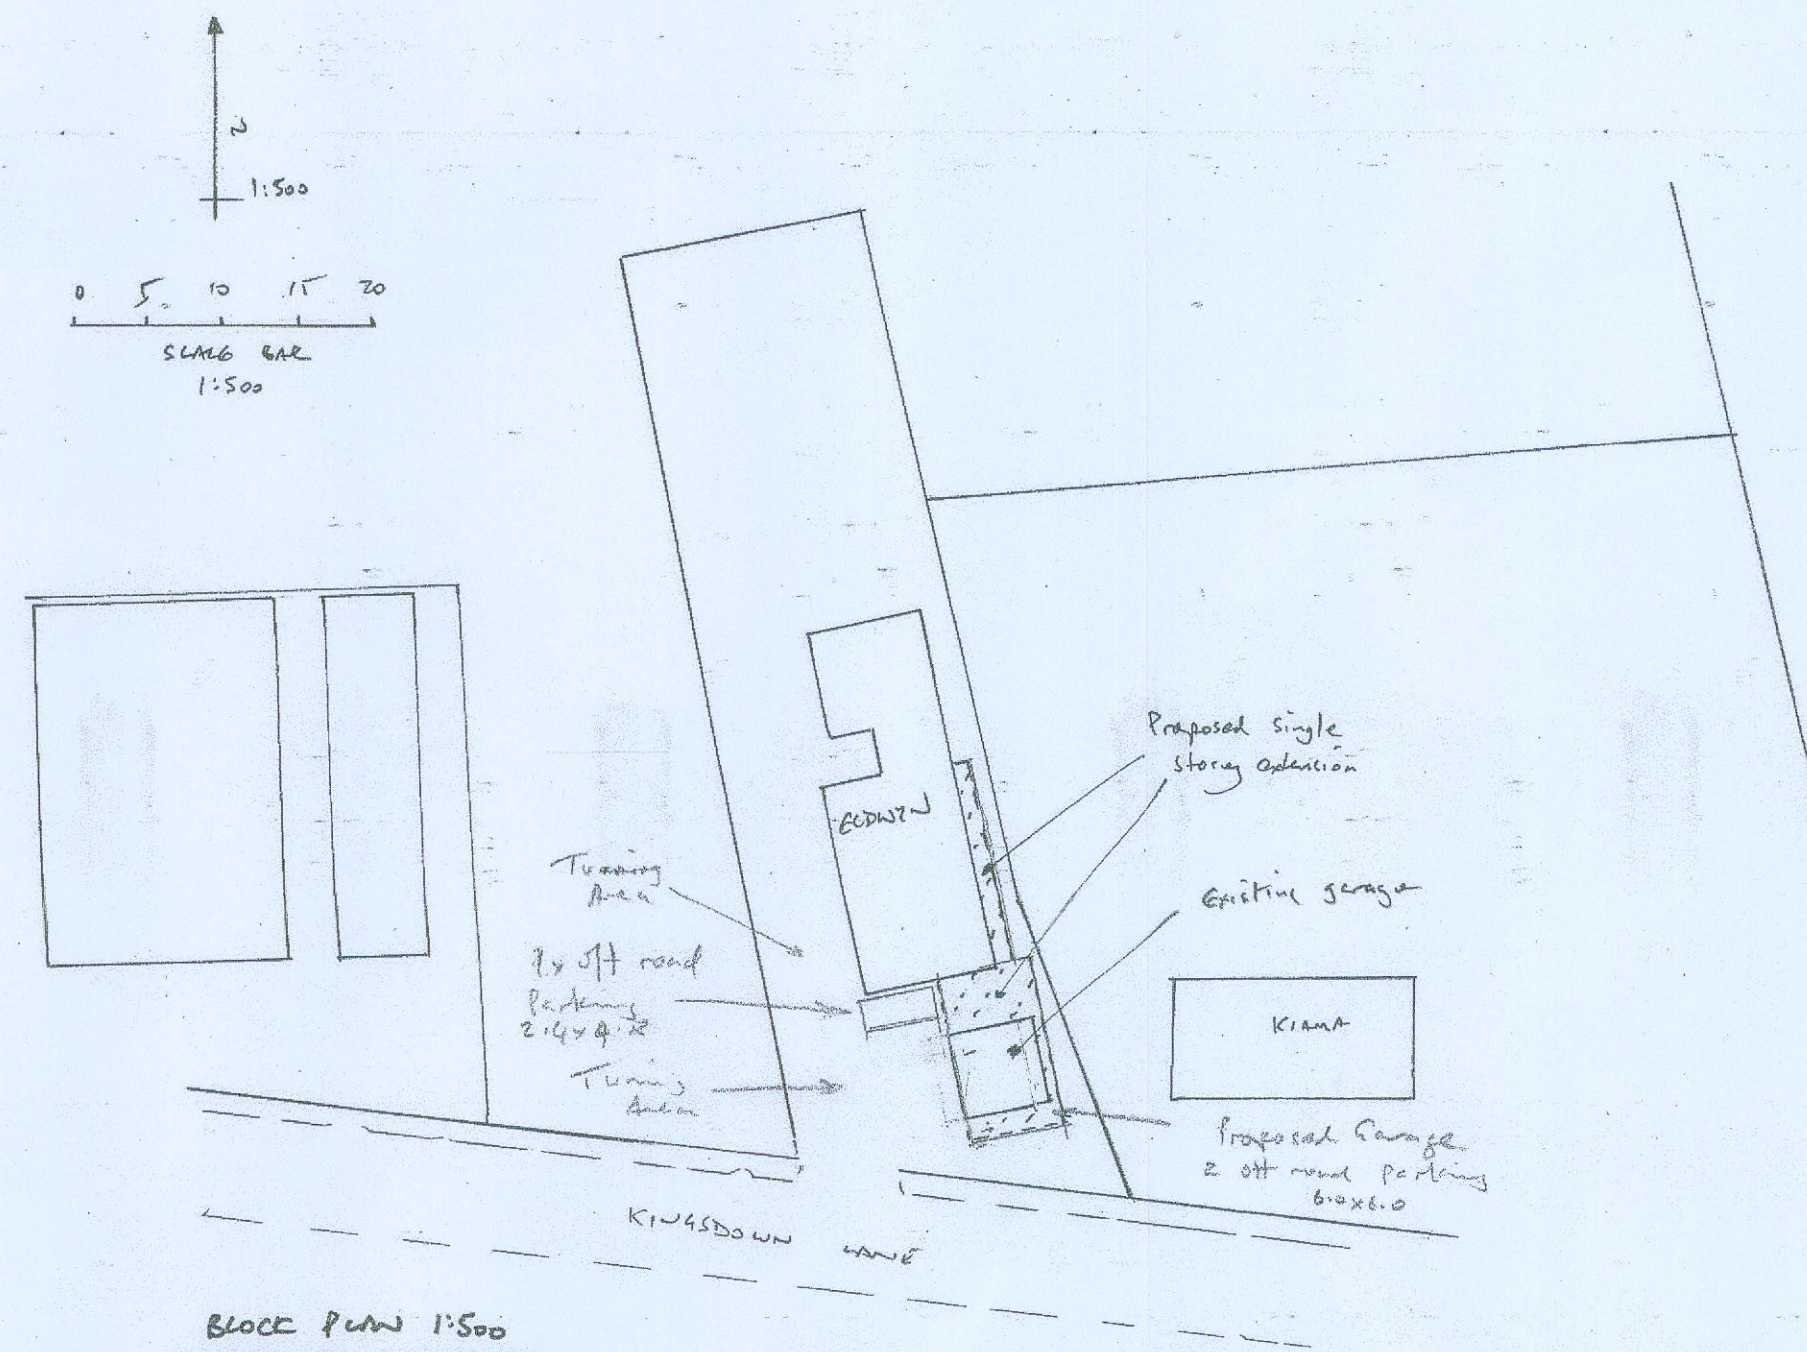 N
1:500
0 5 10 15 20
SCALE BAR
1:500
Proposed single
storey extension
ELDWIN
Turning
Area
Existing garage
1x off road
Parking
2.4 x 4.8
KIAMA
Turning
Area
Proposed Garage
2 off road parking
6.0 x 6.0
KINGSDOWN LANE
BLOCK PLAN 1:500